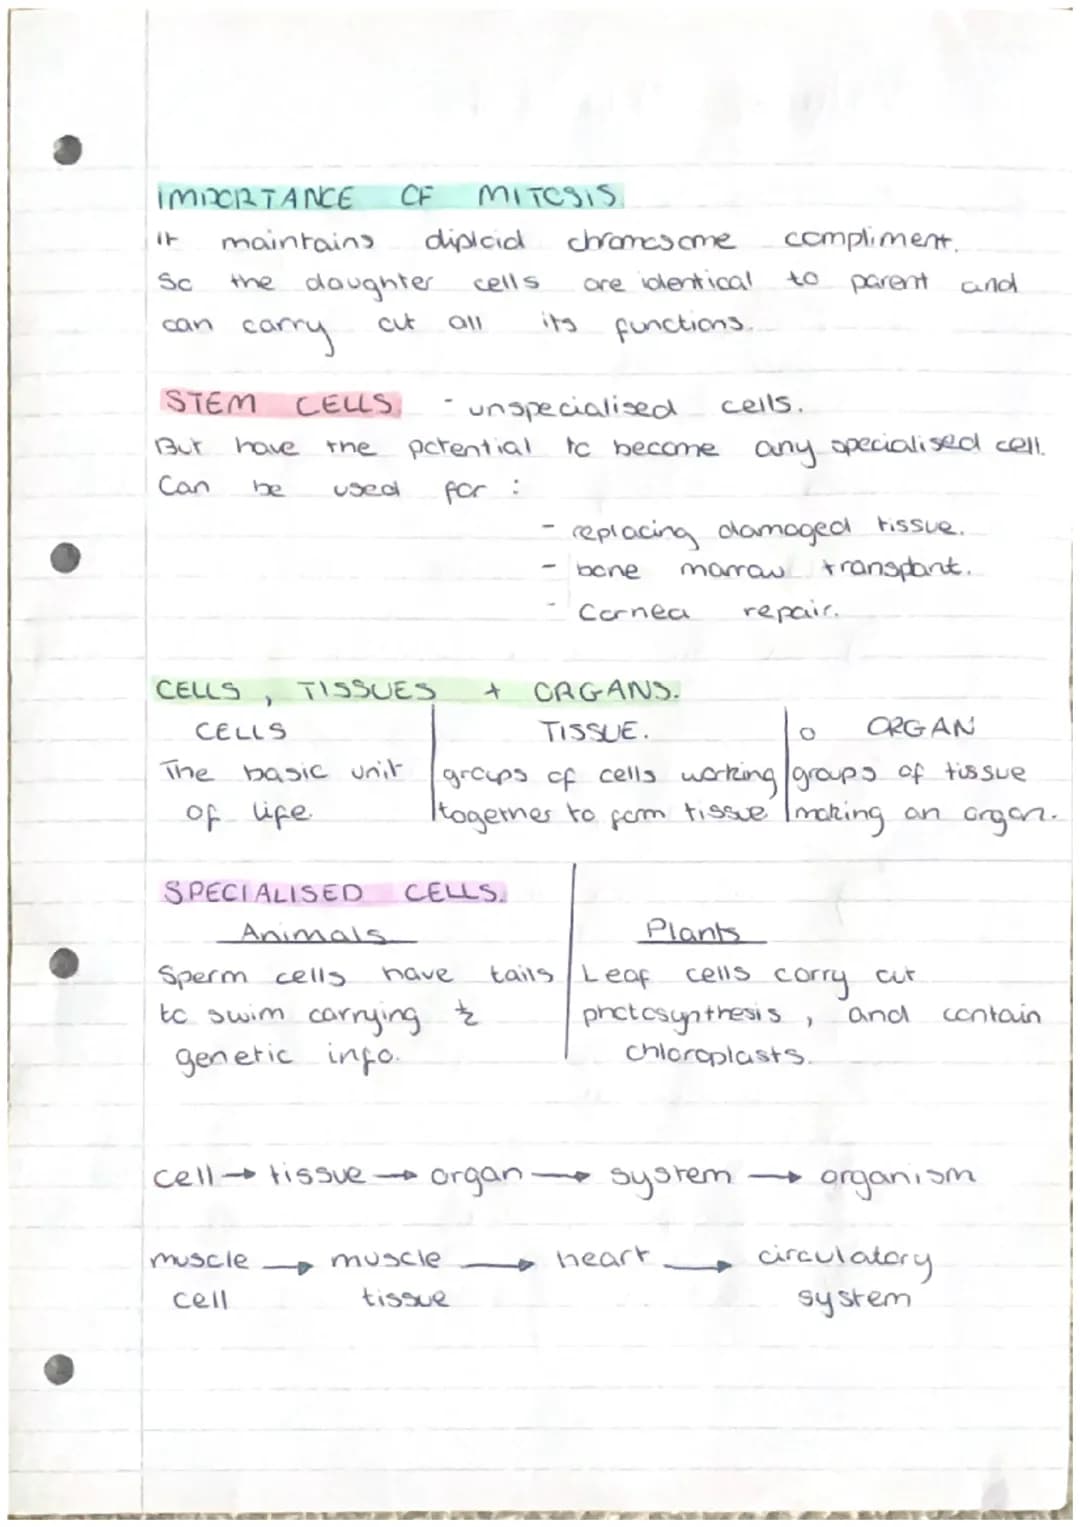 IMPORTANCE OF MITOSIS.
It maintains diploid chromosome compliment.
So the daughter cells are identical to parent and
can carry out all its functions.
STEM CELLS. - unspecialised cells.
But have the potential to become any specialised cell.
Can be used for :
- replacing damaged tissue.
- bone marrow transplant.
- Cornea repair.
CELLS, TISSUES + ORGANS.
CELLS
The basic unit
of life.
TISSUE.
groups of cells working
together to form tissue
ORGAN
groups of tissue
making an organ.
SPECIALISED CELLS.
Animals
Sperm cells have tails
to swim carrying ½
genetic info.
Plants
Leaf cells carry out
photosynthesis, and contain
chloroplasts.
cell → tissue → organ → system → organism
muscle → muscle → heart → circulatory
cell tissue system